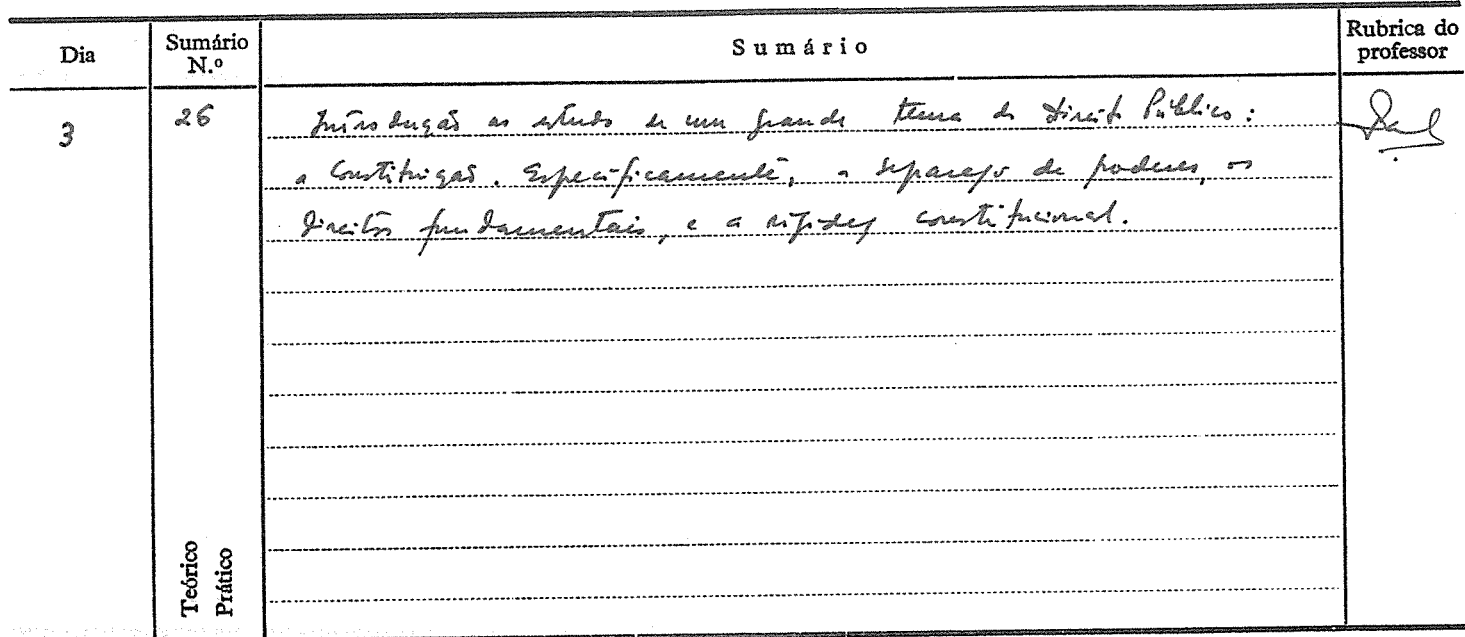 Dia
Sumário N.º
Sumário
Rubrica do professor
3
26
Introdução ao estudo de um grande tema do Direito Público:
a Constituição. Especificamente, a separação de poderes, os
direitos fundamentais, e a rigidez constitucional.
Teórico
Prático